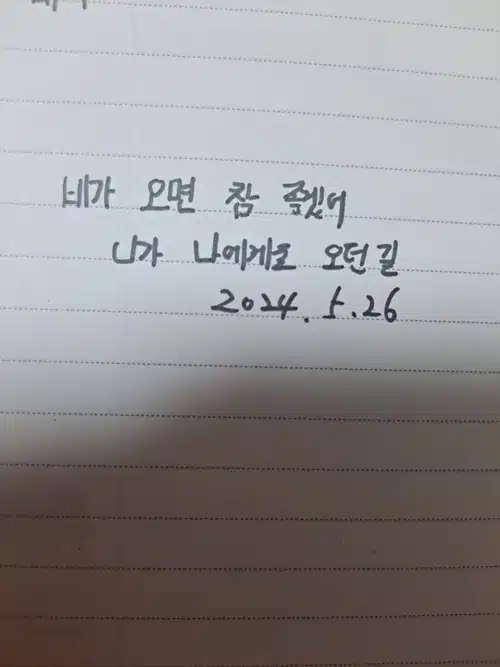 비가 오면 참 좋겠어
니가 나에게로 오던 길
2024. 5. 26